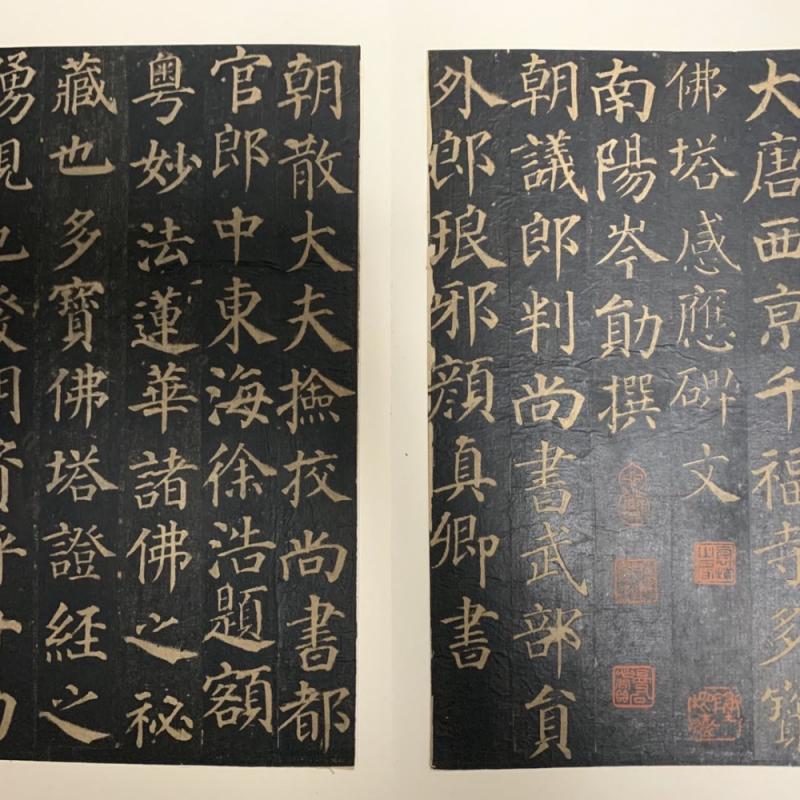 大唐西京千福寺多寳
佛塔感應碑文
南陽岑勛撰
朝議郎判尚書武部貟
外郎琅邪顔真卿書
朝散大夫撿挍尚書都
官郎中東海徐浩題額
粤妙法蓮華諸佛之祕
藏也多寳佛塔證經之
踴現也發明資乎十力